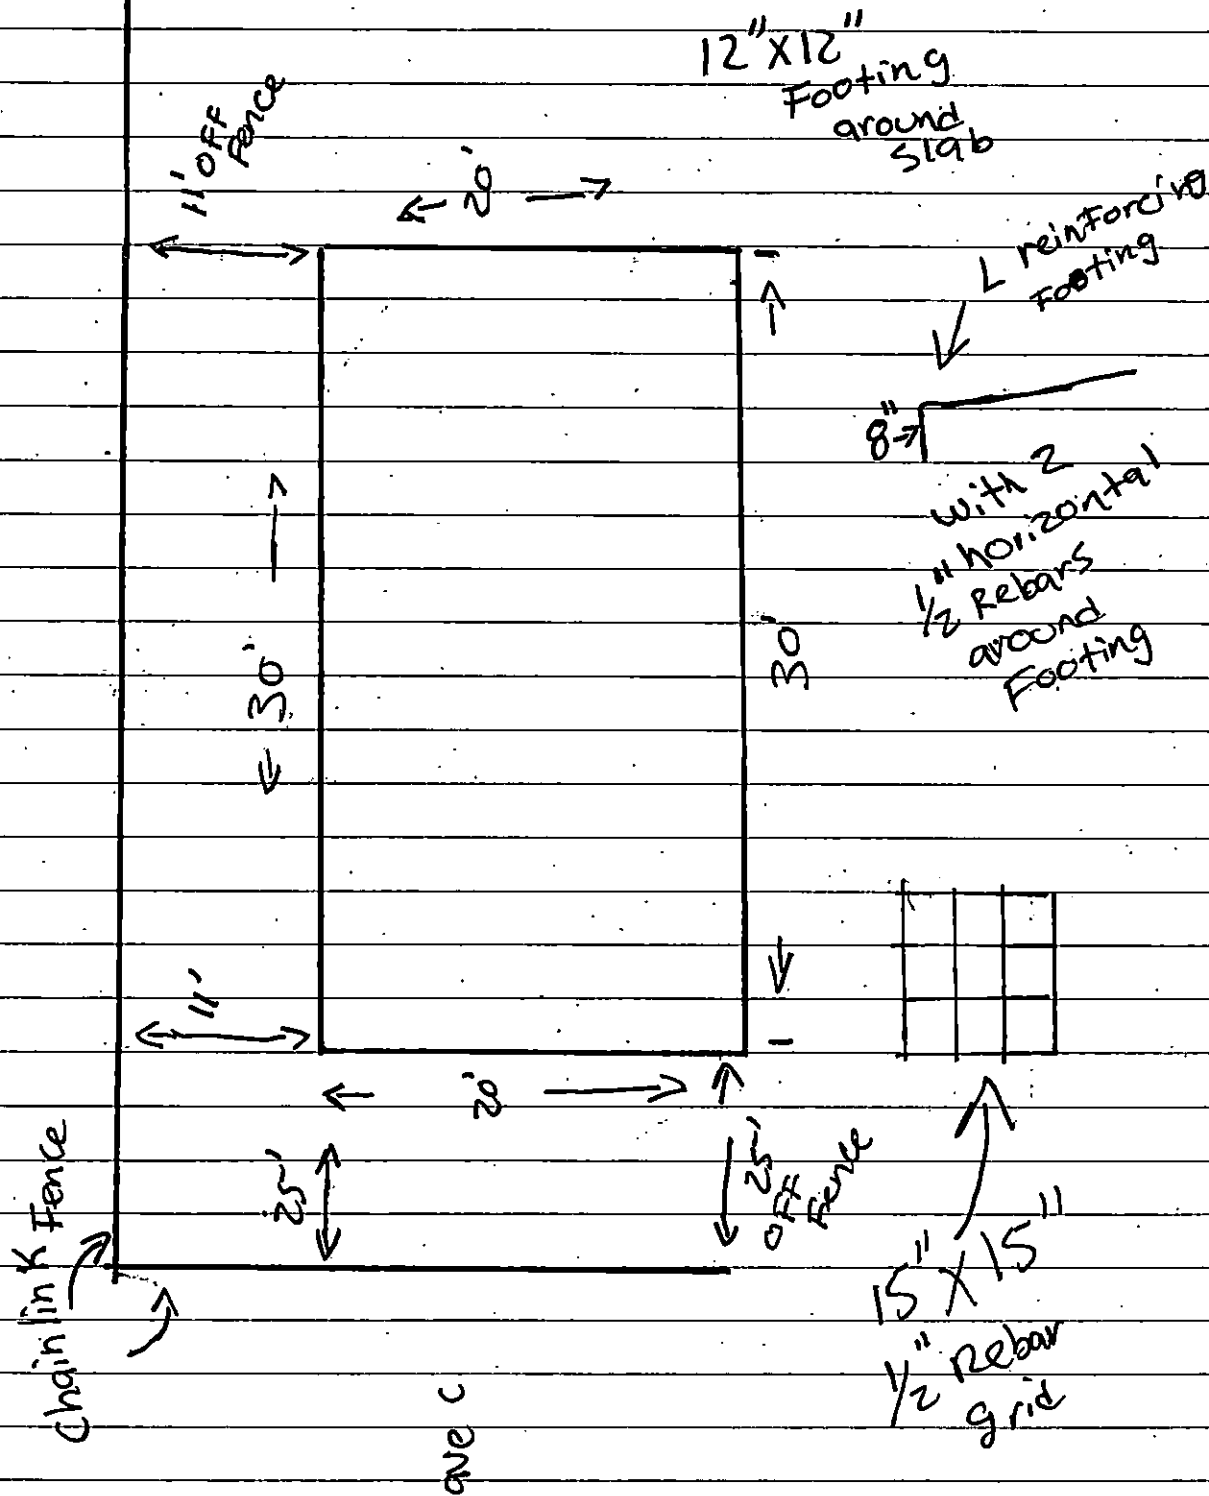 12" X 12"
Footing
around
slab
11' OFF
Fence
20'
L reinforcing
Footing
8"
with 2
1/2" horizontal
Rebars
around
Footing
30'
30'
11'
20'
25'
25'
OFF
Fence
Chain link Fence
15" X 15"
1/2" Rebar
grid
ave C